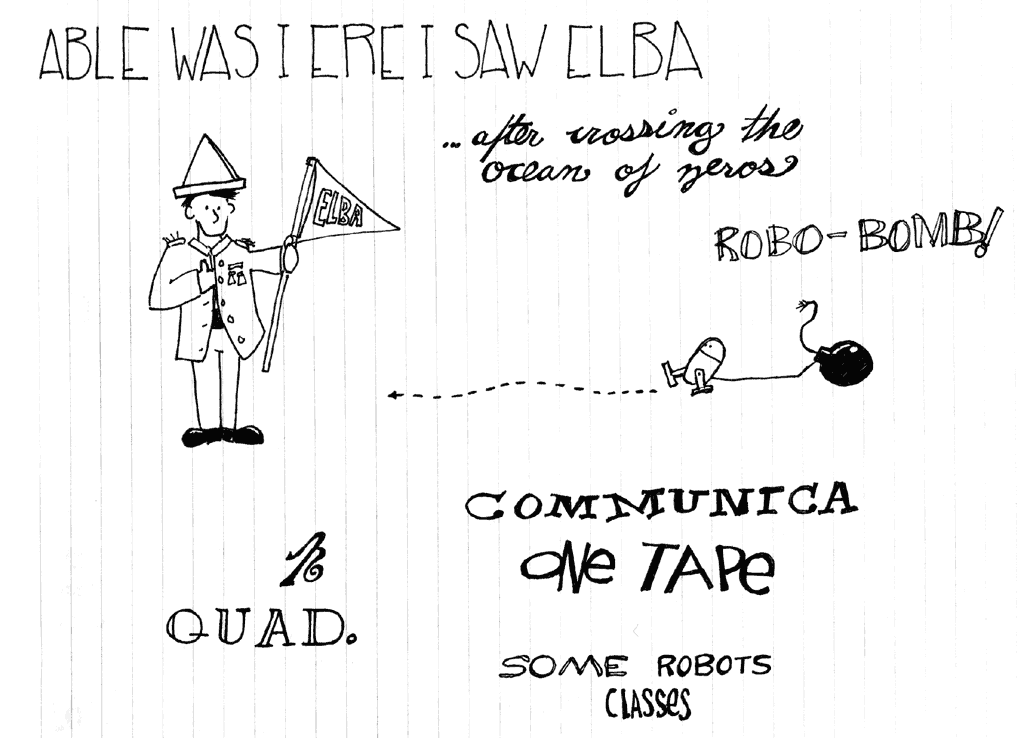 ABLE WAS I ERE I SAW ELBA
...after crossing the
ocean of zeros
ELBA
ROBO-BOMB!
COMMUNICA
ONE TAPE
QUAD.
SOME ROBOTS
CLASSES